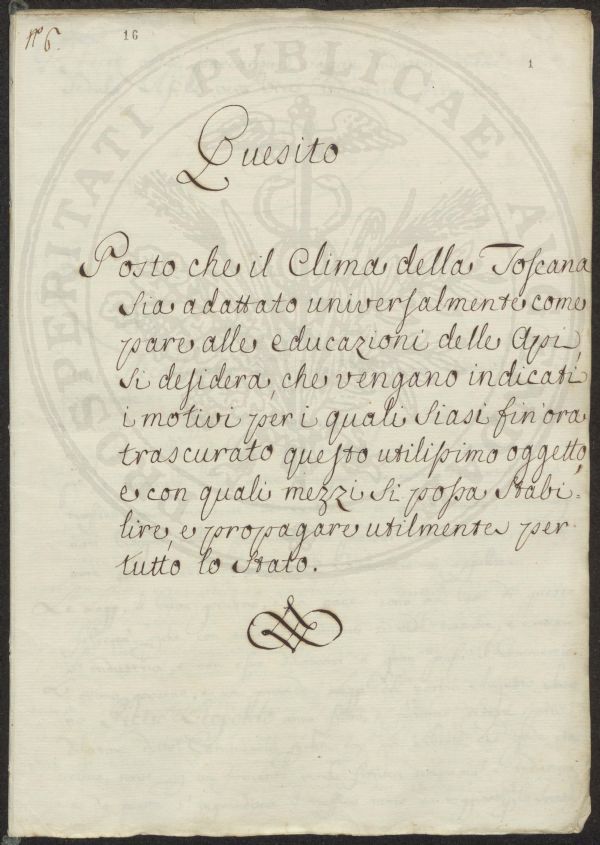 nº 6.
16
1
Quesito
Posto che il Clima della Toscana
sia adattato universalmente come
pare alle educazioni delle Api,
si desidera, che vengano indicati
i motivi per i quali siasi fin'ora
trascurato questo utilissimo oggetto,
e con quali mezzi si possa stabi=
lire, e propagare utilmente per
tutto lo Stato.
PROSPERITATI PVBLICAE AVGENDAE